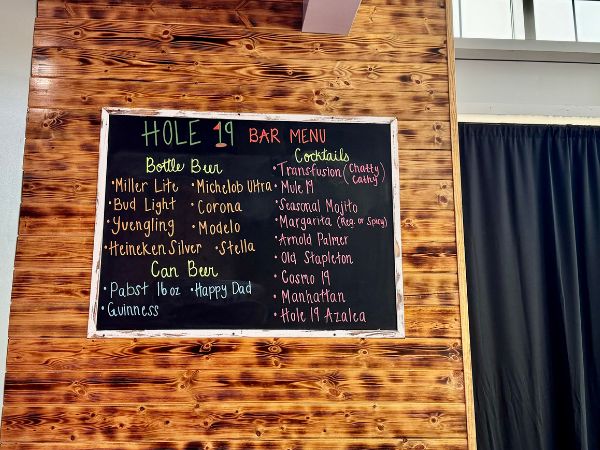 HOLE 19 BAR MENU
Bottle Beer
• Miller Lite • Michelob Ultra
• Bud Light • Corona
• Yuengling • Modelo
• Heineken Silver • Stella
Can Beer
• Pabst 16 oz • Happy Dad
• Guinness
Cocktails
• Transfusion (Chatty Cathy)
• Mule 19
• Seasonal Mojito
• Margarita (Reg. or Spicy)
• Arnold Palmer
• Old Stapleton
• Cosmo 19
• Manhattan
• Hole 19 Azalea